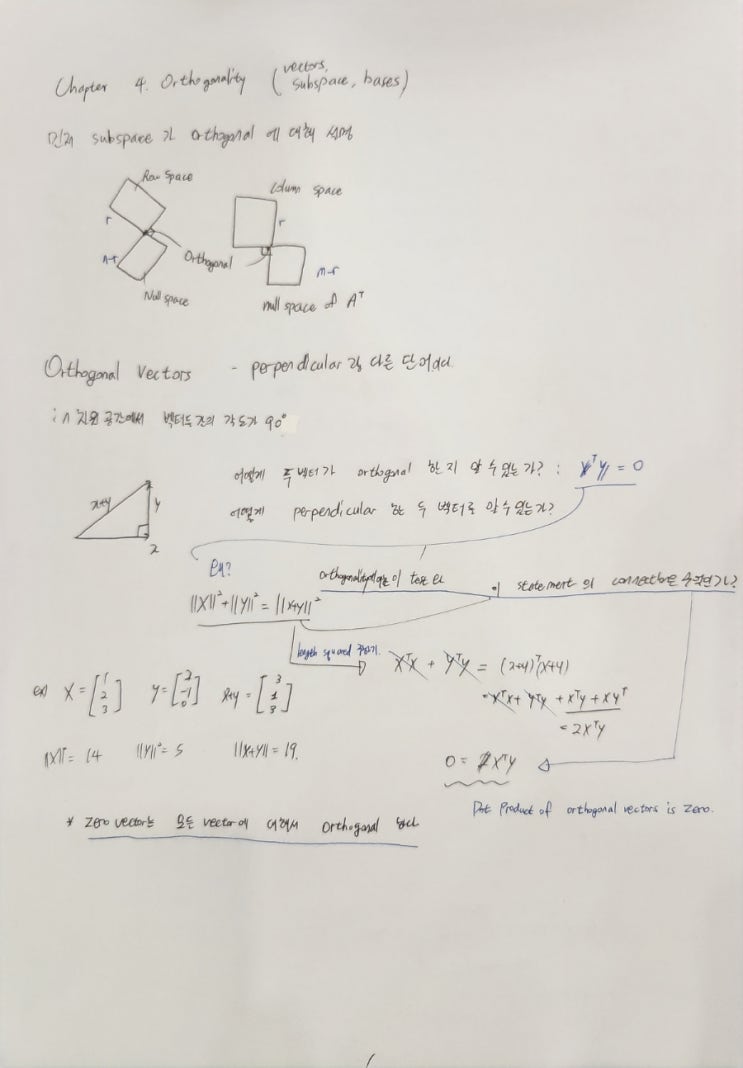 Chapter 4. Orthogonality (vectors, subspace, bases)
먼저 subspace가 orthogonal에 대해 설명
Row space
Column space
r
r
Orthogonal
n-r
m-r
Null space
null space of Aᵀ
Orthogonal Vectors - perpendicular랑 다른 단어이다.
in 차원 공간에서 벡터두 간의 각도가 90°
어떻게 두 벡터가 orthogonal 한 지 알 수 있는가? : xᵀy = 0
어떻게 perpendicular 한 두 벡터로 알 수 있는가?
x+y
y
x
orthogonality 이 test
이 statement의 connection은 무엇인가?
||x||²+||y||² = ||x+y||²
length squared
xᵀx + yᵀy = (x+y)ᵀ(x+y)
= xᵀx + yᵀy + xᵀy + xyᵀ
= 2xᵀy
ex) x = [1 2 3] y = [2 -1 0] x+y = [3 1 3]
||x||² = 14 ||y||² = 5 ||x+y|| = 19.
0 = 2xᵀy
Dot Product of orthogonal vectors is zero.
* zero vector는 모든 vector에 대해서 orthogonal 한다